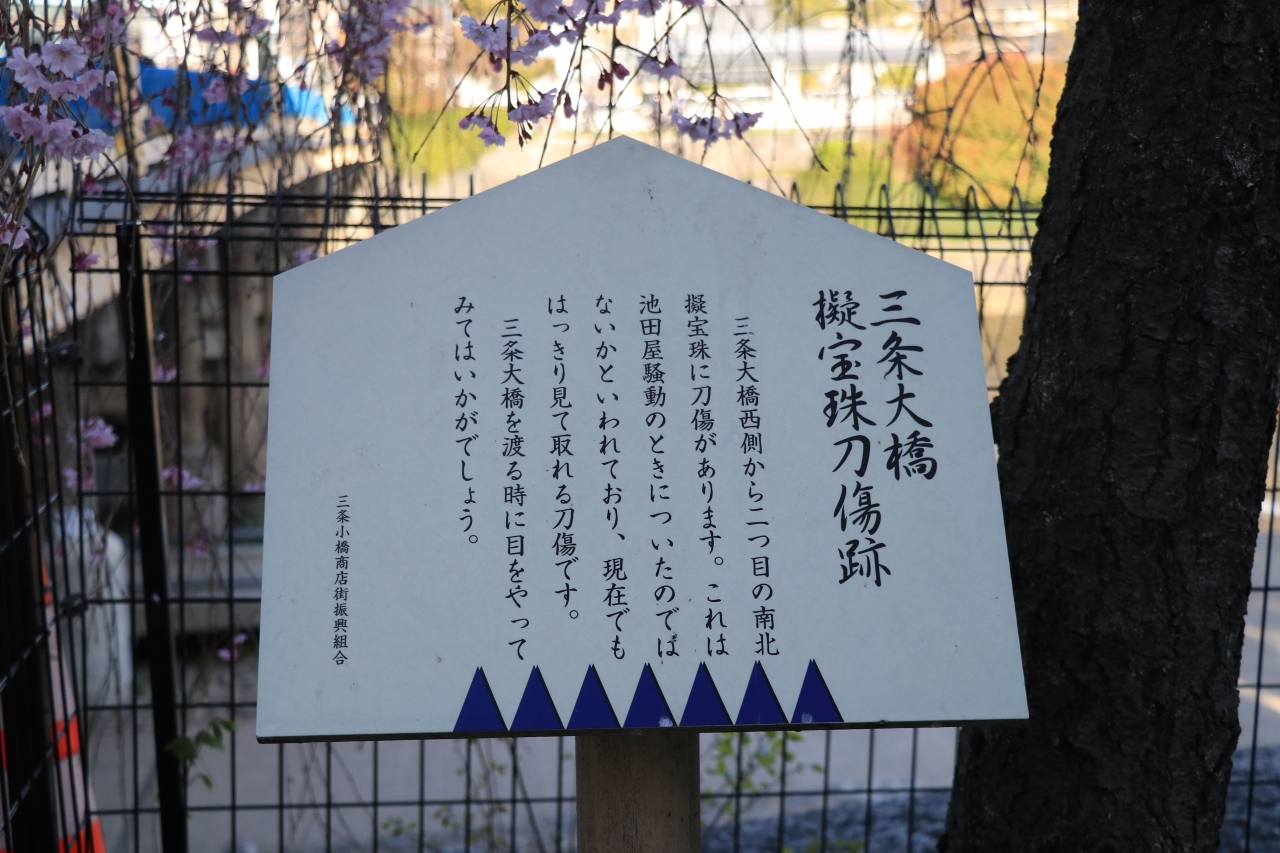 三条大橋
擬宝珠刀傷跡
三条大橋西側から二つ目の南北
擬宝珠に刀傷があります。これは
池田屋騒動のときについたのでは
ないかといわれており、現在でも
はっきり見て取れる刀傷です。
三条大橋を渡る時に目をやって
みてはいかがでしょう。
三条小橋商店街振興組合